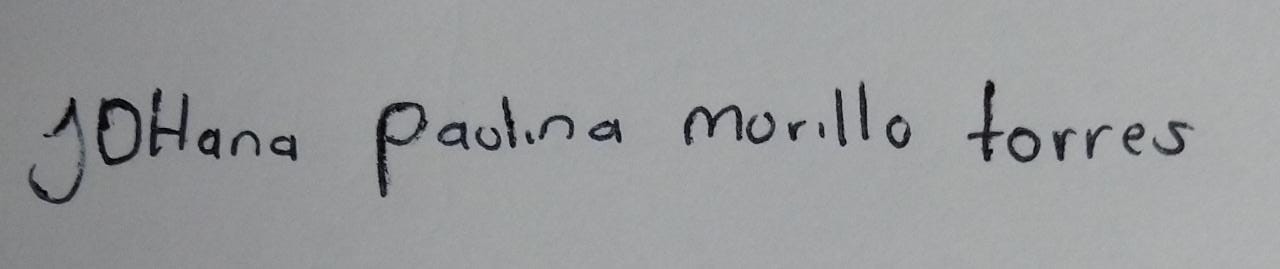 JOHana Paulina morillo torres